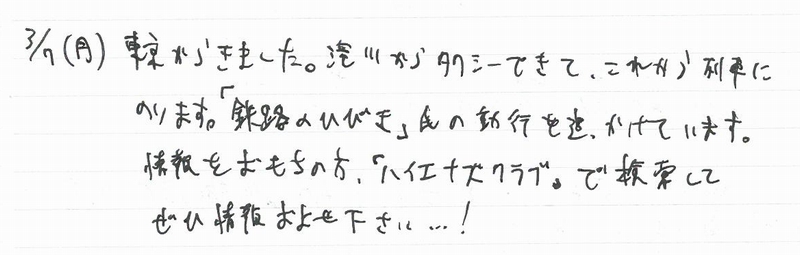 3/7(月) 東京からきました。滝川からタクシーできて、これから列車に
のります。「鉄路のひびき」氏の動行を追いかけています。
情報をおもちの方、「ハイエナズクラブ」で検索して
ぜひ情報およせ下さい…!